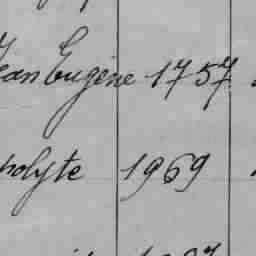 Jean Eugène 1757
polyte 1969